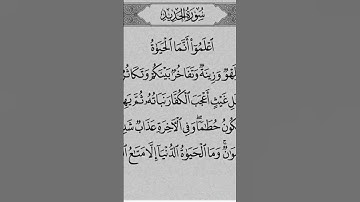 سُورَةُ الْحَدِيدِ
ٱعْلَمُوٓا۟ أَنَّمَا ٱلْحَيَوٰةُ
لَهْوٌ وَزِينَةٌ وَتَفَاخُرٌۢ بَيْنَكُمْ وَتَكَاثُرٌ
لِ غَيْثٍ أَعْجَبَ ٱلْكُفَّارَ نَبَاتُهُۥ ثُمَّ يَهِ
كُونُ حُطَٰمًا ۖ وَفِى ٱلْءَاخِرَةِ عَذَابٌ شَدِ
وَٰنٌ ۚ وَمَا ٱلْحَيَوٰةُ ٱلدُّنْيَآ إِلَّا مَتَٰعُ ٱل